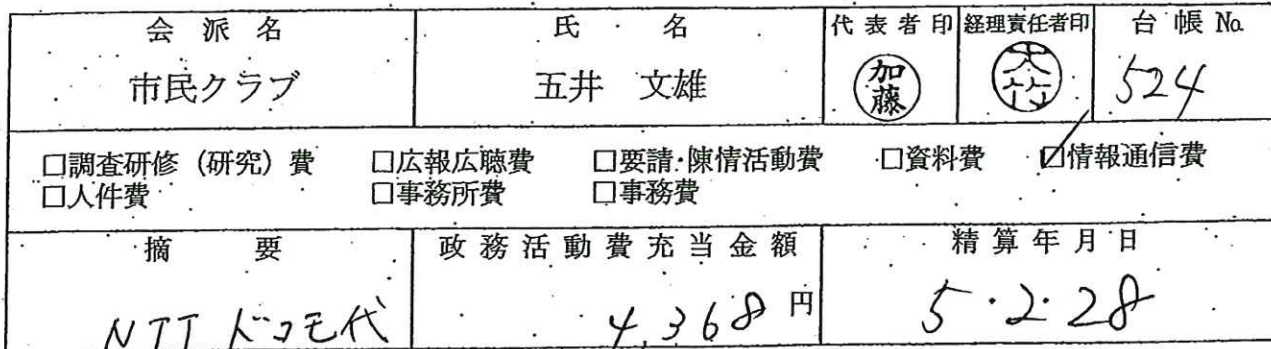 会派名 氏名 代表者印 経理責任者印 台帳No.
市民クラブ 五井 文雄 加藤 大竹 524
□調査研修(研究)費 □広報広聴費 □要請・陳情活動費 □資料費 ☑情報通信費
□人件費 □事務所費 □事務費
摘要 政務活動費充当金額 精算年月日
NTTドコモ代 4,368円 5・2・28